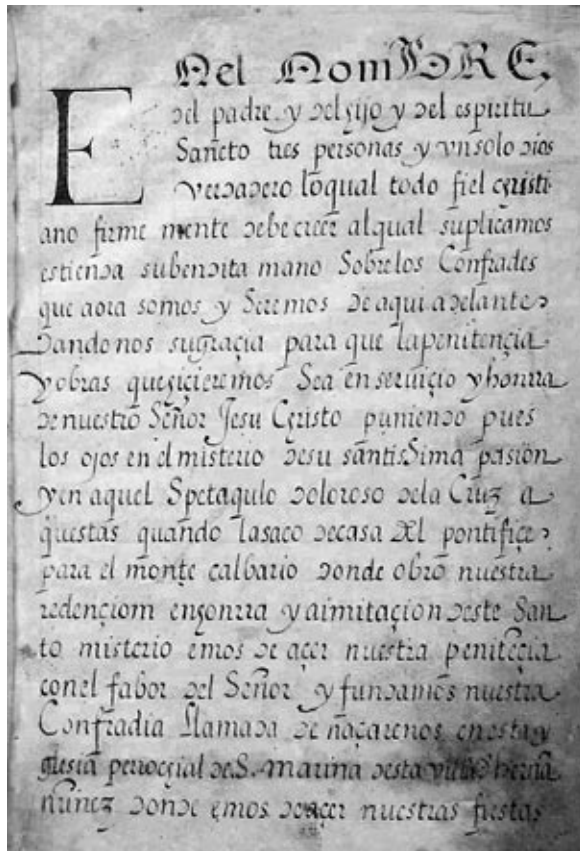 EN el NomBRE,
del padre. y del hijo y del espiritu
Sancto tres personas y un solo dios
verdadero lo qual todo fiel christi
ano firme mente debe creer al qual suplicamos
estienda su bendita mano Sobre los Confrades
que aora somos y Seremos de aqui adelante
Dando nos su graçia para que la penitençia
y obras que hiçieremos Sea en seruiçio y honrra
de nuestro Señor Jesu Christo puniendo pues
los ojos en el misterio de su santisSima pasion
y en aquel Spetaqulo doloroso de la Cruz a
questas quando la saco de casa del pontifiçe
para el monte calbario donde obro nuestra
redençiom en honrra y a imitaçion deste San
to misterio emos de açer nuestra peniteçia
con el fabor del Señor y fundamos nuestra
Confradia Llamada de naçarenos en esta y
glesia perrochial de S. marina desta villa
nunez donde emos de açer nuestras fiestas